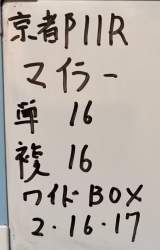 京都11R
マイラー
単 16
複 16
ワイドBOX
2・16・17